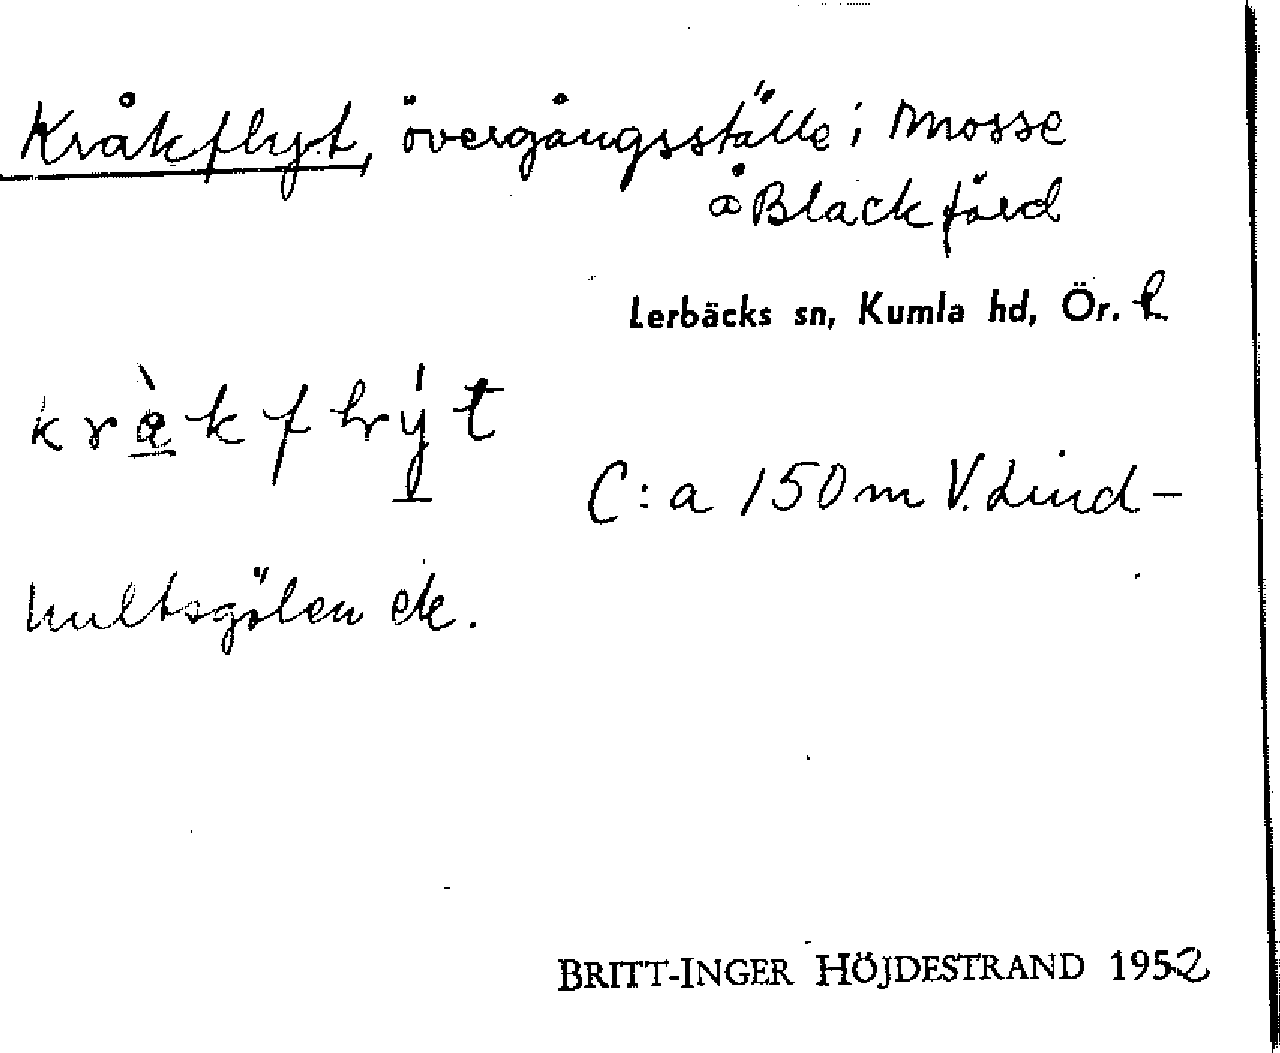 Kråkflyt, övergångsställe i mosse
å Blackfärd
Lerbäcks sn, Kumla hd, Ör. l
C:a 150 m V. Lind-
hultsgölen
BRITT-INGER HÖJDESTRAND 1952